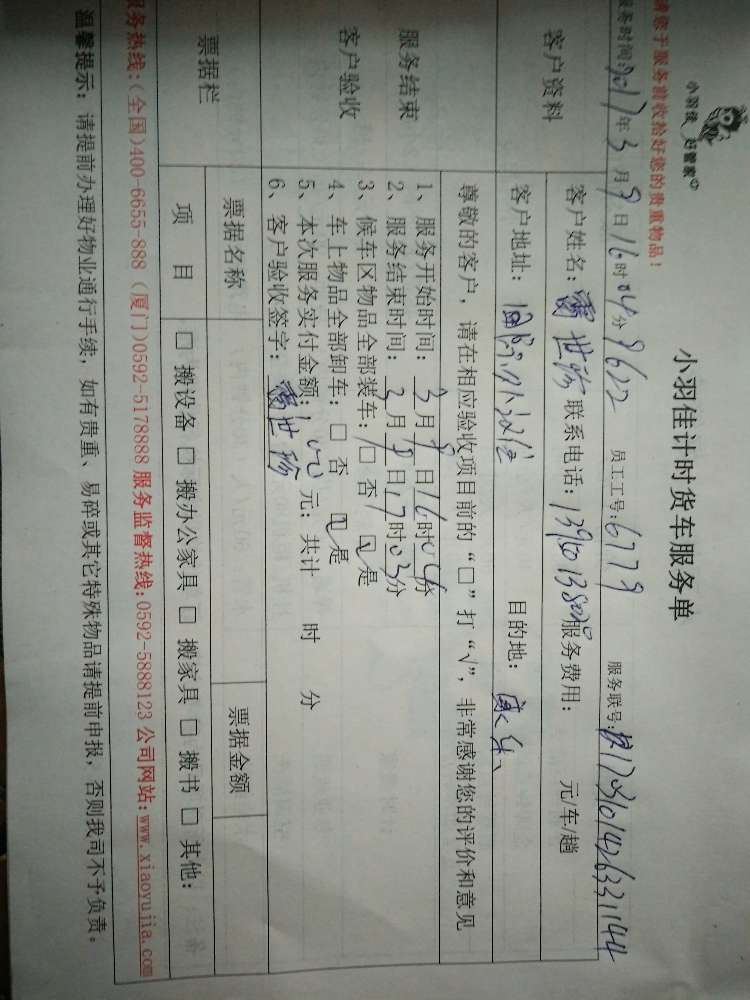 小羽佳 好管家
小羽佳计时货车服务单
请您于服务前收拾好您的贵重物品!
服务时间:2017年3月9日16时04分 员工工号:6779 服务联号:
客户资料
客户姓名: 世 联系电话: 服务费用: 元/车/趟
客户地址: 目的地:
尊敬的客户,请在相应验收项目前的“□”打“√”,非常感谢您的评价和意见
服务结束
客户验收
1、服务开始时间:3月9日16时04分
2、服务结束时间:3月9日17时03分
3、候车区物品全部装车:□否 ☑是
4、车上物品全部卸车:□否 ☑是
5、本次服务实付金额: 元;共计 时 分
6、客户验收签字: 世
票据栏
票据名称 票据金额
项 目 □搬设备 □搬办公家具 □搬家具 □搬书 □其他:
服务热线:(全国)400-6655-888 (厦门)0592-5178888 服务监督热线:0592-5888123 公司网站:www.xiaoyujia.com
温馨提示:请提前办理好物业通行手续,如有贵重、易碎或其它特殊物品请提前申报,否则我司不予负责。